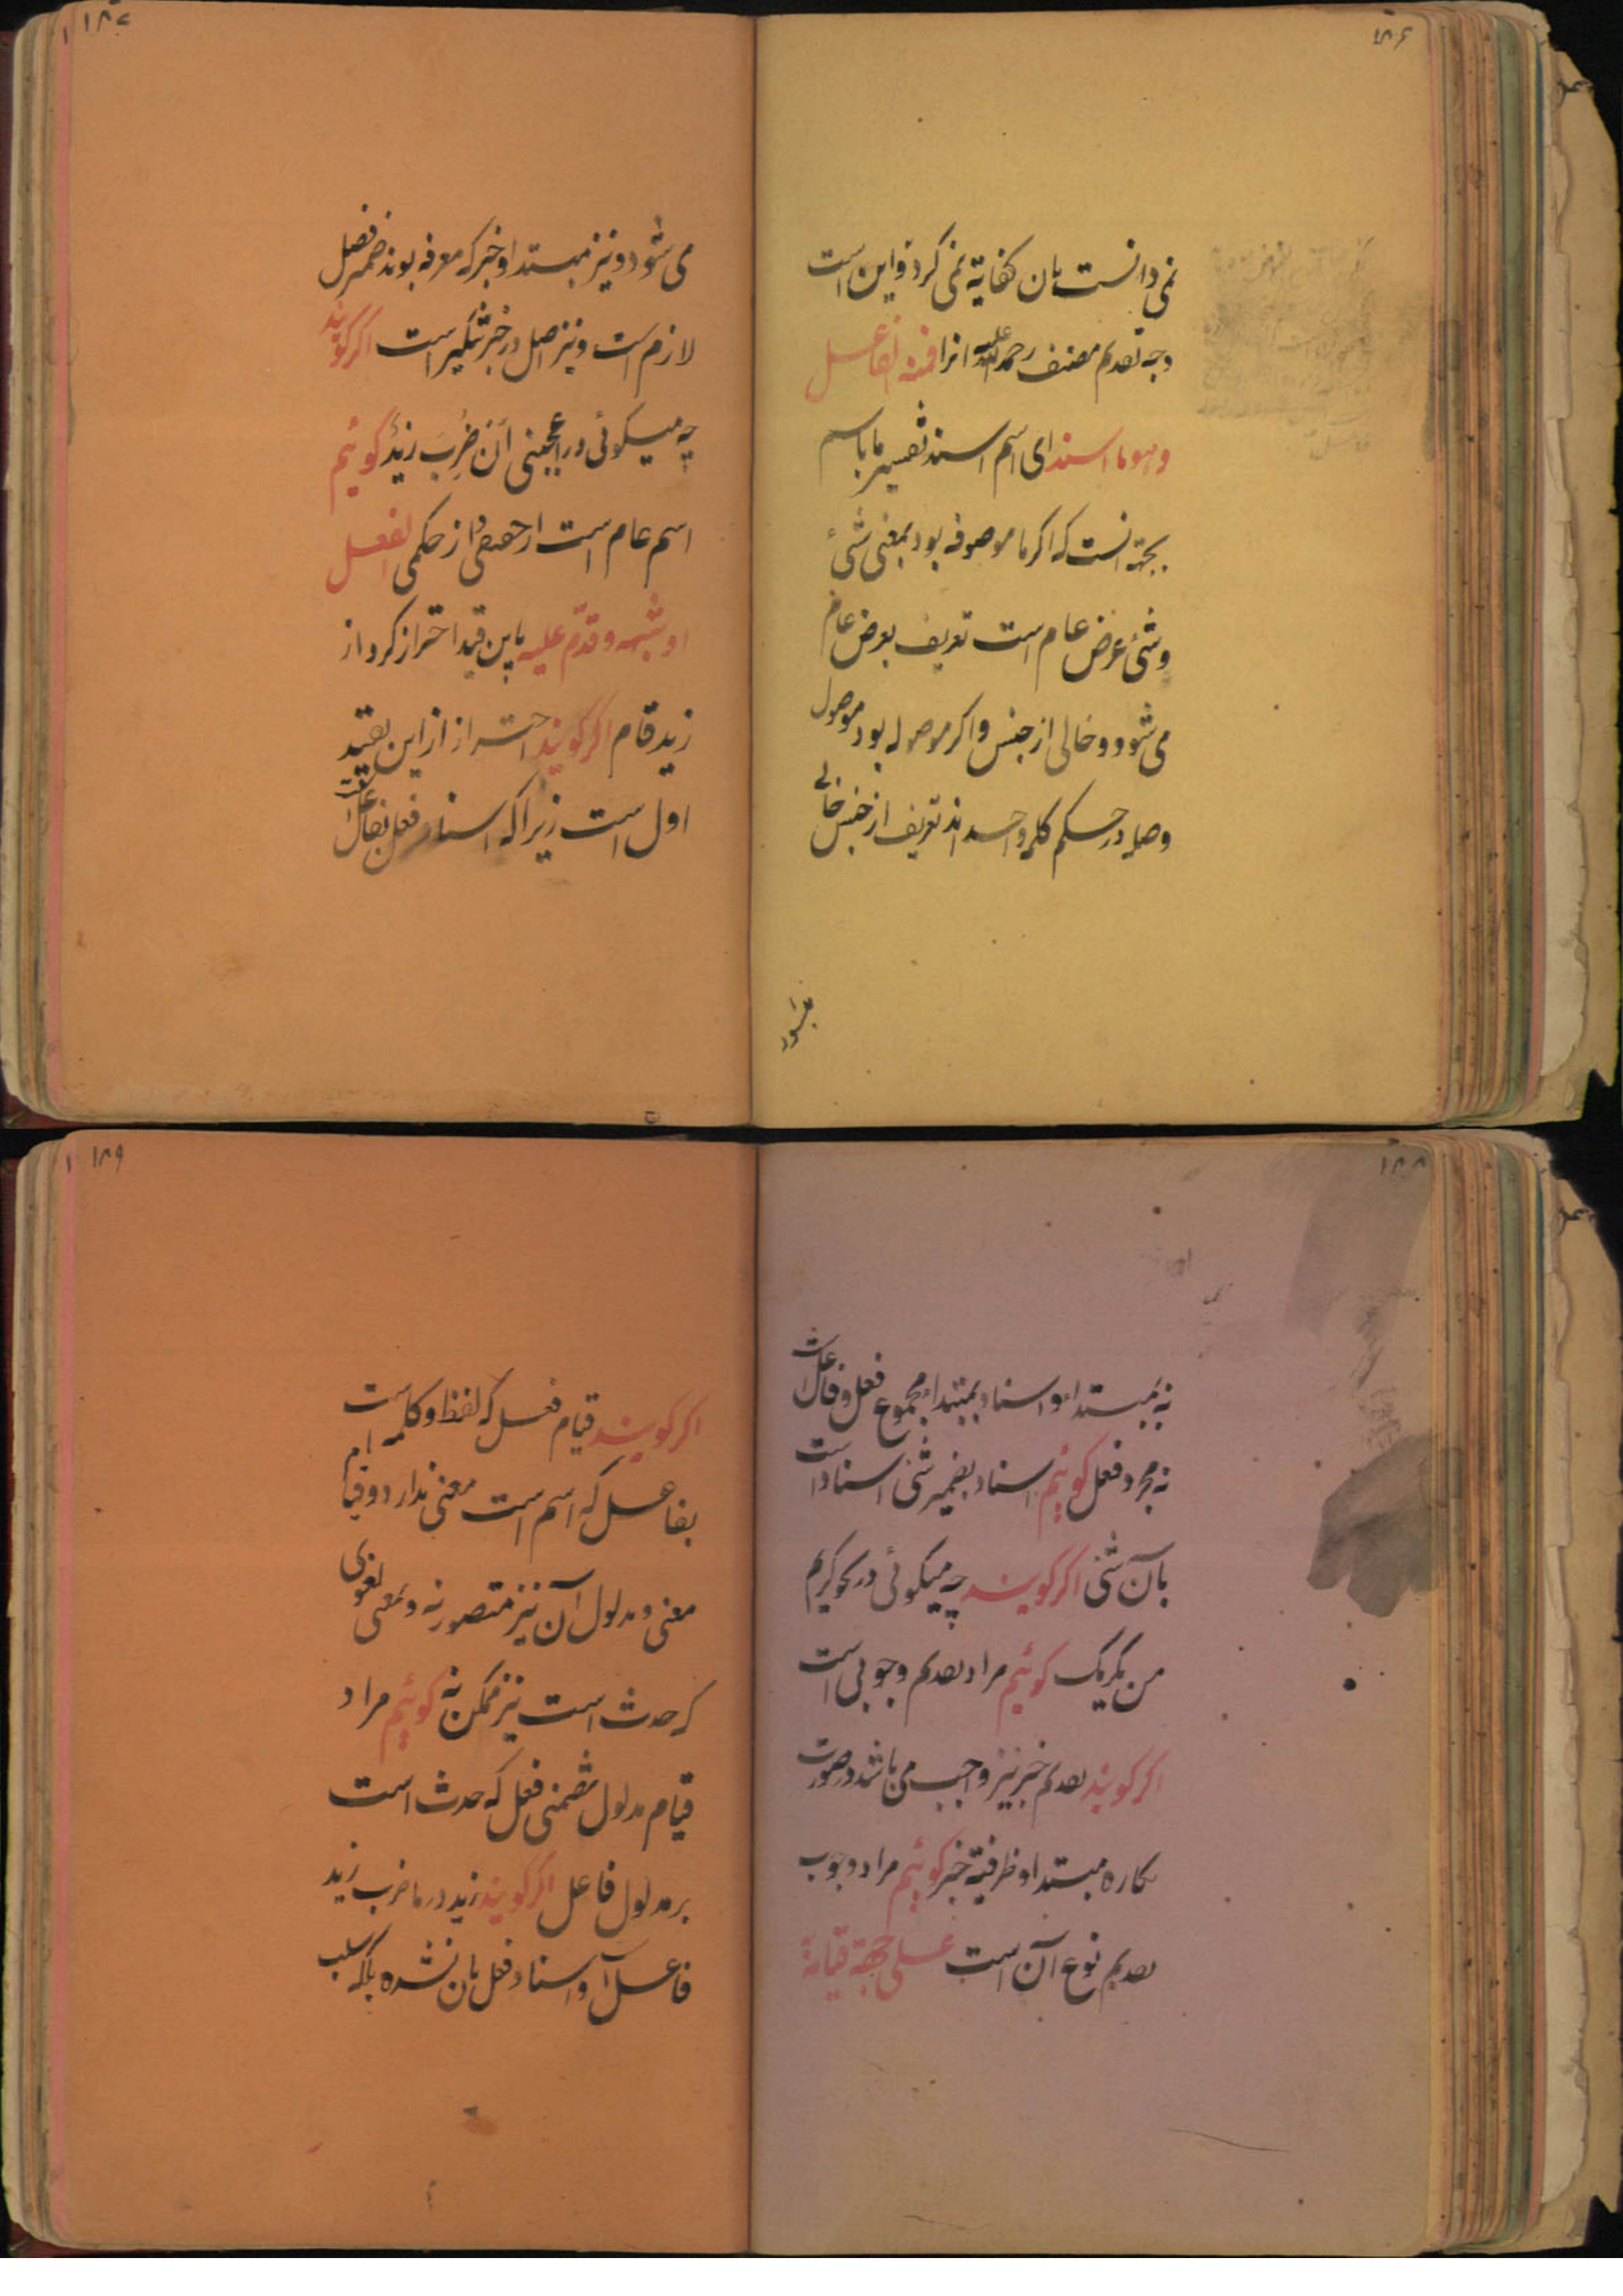 ۱۸۶
نمی دانست بان کفایة نمی کرد و این است
وجه تقدیم مصنف رحمة الله علیه انرا فمنه الفاعل
وهو ما اسند ای اسم اسند تفسیر ما باسم
بجهة انست که اکر ما موصوفه بود بمعنی شئ
وشئ عرض عام است تعریف بعرض عام
می شود و خالی از جنس و اکر موصوله بود موصول
وصله در حکم کلمه واحد اند تعریف از جنس خالی
میشود
۱۸۷
می شود و نیز مبتدا و خبر که معرفه بوند ضمیر فصل
لازم است و نیز اصل در خبر تنکیر است اکر کویند
چه میکوئی در اعجبنی أن ضرب زید کوئیم
اسم عام است از حقیقی و از حکمی الفعل
او شبهه وقدّم علیه باین قید احتراز کرد از
زید قام اکر کویند احتراز ازاین بقید
اول است زیرا که اسناد فعل بفاعل است
۱۸۸
نه بمبتدا و اسناد بمبتدا مجموع فعل و فاعل است
نه مجرد فعل کوئیم اسناد بضمیر شئ اسناد است
بآن شئ اکر کویند چه میکوئی در نحو کریم
من یکرمک کوئیم مراد تقدیم وجوبی است
اکر کویند تقدیم خبر نیز واجب می باشد در صورت
نکاره مبتدا و ظرفیة خبر کوئیم مراد وجوب
تقدیم نوع آن است علی جهة قیامه
۱۸۹
اکر کویند قیام فعل که لفظ و کلمه است
بفاعل که اسم است معنی ندارد و قیام
معنی و مدلول آن نیز متصور نه و بمعنی لغوی
که حدث است نیز ممکن نه کوئیم مراد
قیام مدلول تضمنی فعل که حدث است
بر مدلول فاعل اکر کویند زید در ما ضرب زید
فاعل است و اسناد فعل بان نشده بلکه سلب